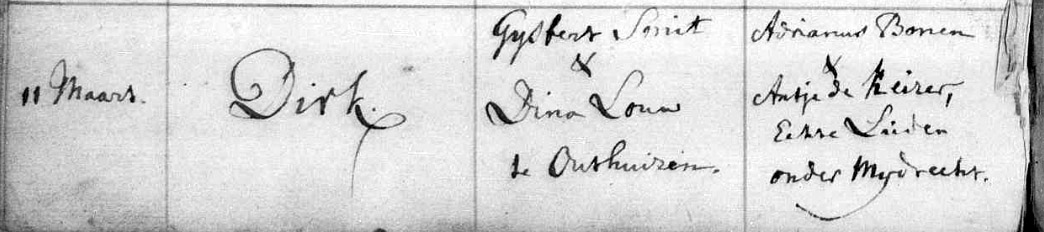 11 Maart.
Dirk.
Gysbert Smit
&
Dina Louw
te Outhuizen.
Adrianus Bonen
&
Antje de Keizer,
Echte Lieden
onder Mydrecht.